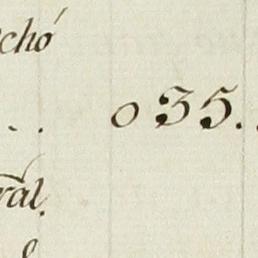 chó
.. 035.
ral.